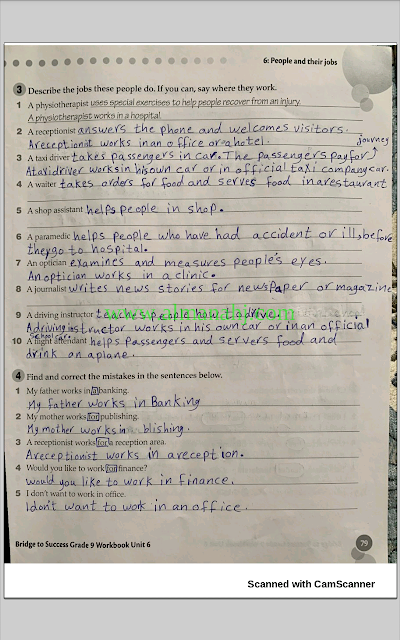 6: People and their jobs
3 Describe the jobs these people do. If you can, say where they work.
1 A physiotherapist uses special exercises to help people recover from an injury.
A physiotherapist works in a hospital.
2 A receptionist answers the phone and welcomes visitors.
A receptionist works in an office or a hotel.
journey
3 A taxi driver takes passengers in car. The passengers pay for
A taxi driver works in his own car or in official taxi company car.
4 A waiter takes orders for food and serves food in a restaurant
5 A shop assistant helps people in shop.
6 A paramedic helps people who have had accident or ill, before
they go to hospital.
7 An optician examines and measures people's eyes.
An optician works in a clinic.
8 A journalist writes news stories for newspaper or magazine
9 A driving instructor teaches people how to drive.
A driving instructor works in his own car or in an official
school car.
10 A flight attendant helps passengers and servers food and
drink on a plane.
4 Find and correct the mistakes in the sentences below.
1 My father works in a banking.
My father works in Banking
2 My mother works for publishing.
My mother works in blishing.
3 A receptionist works for a reception area.
A receptionist works in a reception.
4 Would you like to work for finance?
would you like to work in finance.
5 I don't want to work in office.
I don't want to work in an office.
Bridge to Success Grade 9 Workbook Unit 6
79
Scanned with CamScanner